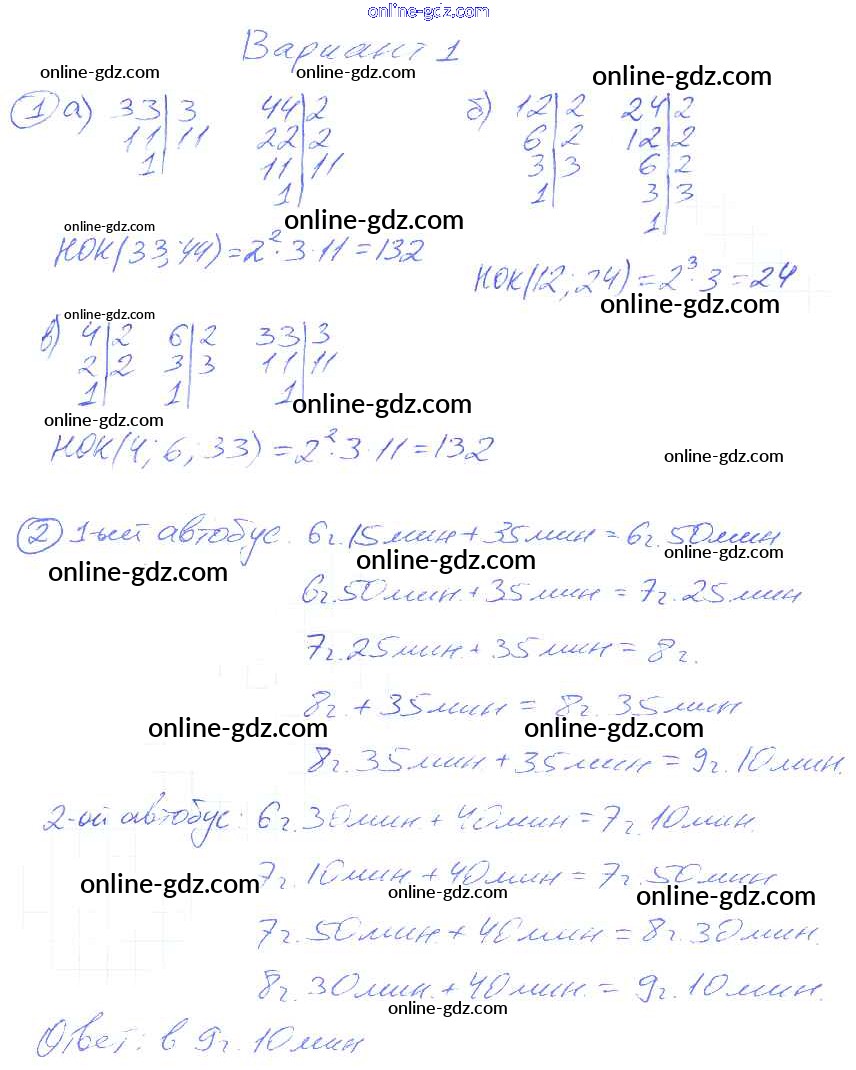 online-gdz.com
Вариант 1
online-gdz.com online-gdz.com online-gdz.com
1 а) 33|3 44|2 б) 12|2 24|2
11|11 22|2 6|2 12|2
1| 11|11 3|3 6|2
1| 1| 3|3
1|
online-gdz.com online-gdz.com
НОК(33;44)=2²·3·11=132
НОК(12;24)=2³·3=24
online-gdz.com online-gdz.com
в) 4|2 6|2 33|3
2|2 3|3 11|11
1| 1| 1|
online-gdz.com online-gdz.com
НОК(4;6;33)=2²·3·11=132
online-gdz.com
2 1-ый автобус: 6ч.15мин+35мин=6ч.50мин
online-gdz.com online-gdz.com online-gdz.com
6ч.50мин.+35мин=7ч.25мин
7ч.25мин.+35мин=8ч.
8ч.+35мин=8ч.35мин
online-gdz.com online-gdz.com
8ч.35мин+35мин=9ч.10мин.
2-ой автобус: 6ч.30мин.+40мин=7ч.10мин.
7ч.10мин+40мин=7ч.50мин
online-gdz.com online-gdz.com online-gdz.com
7ч.50мин.+40мин=8ч.30мин.
8ч.30мин.+40мин.=9ч.10мин.
online-gdz.com
Ответ: в 9ч.10мин